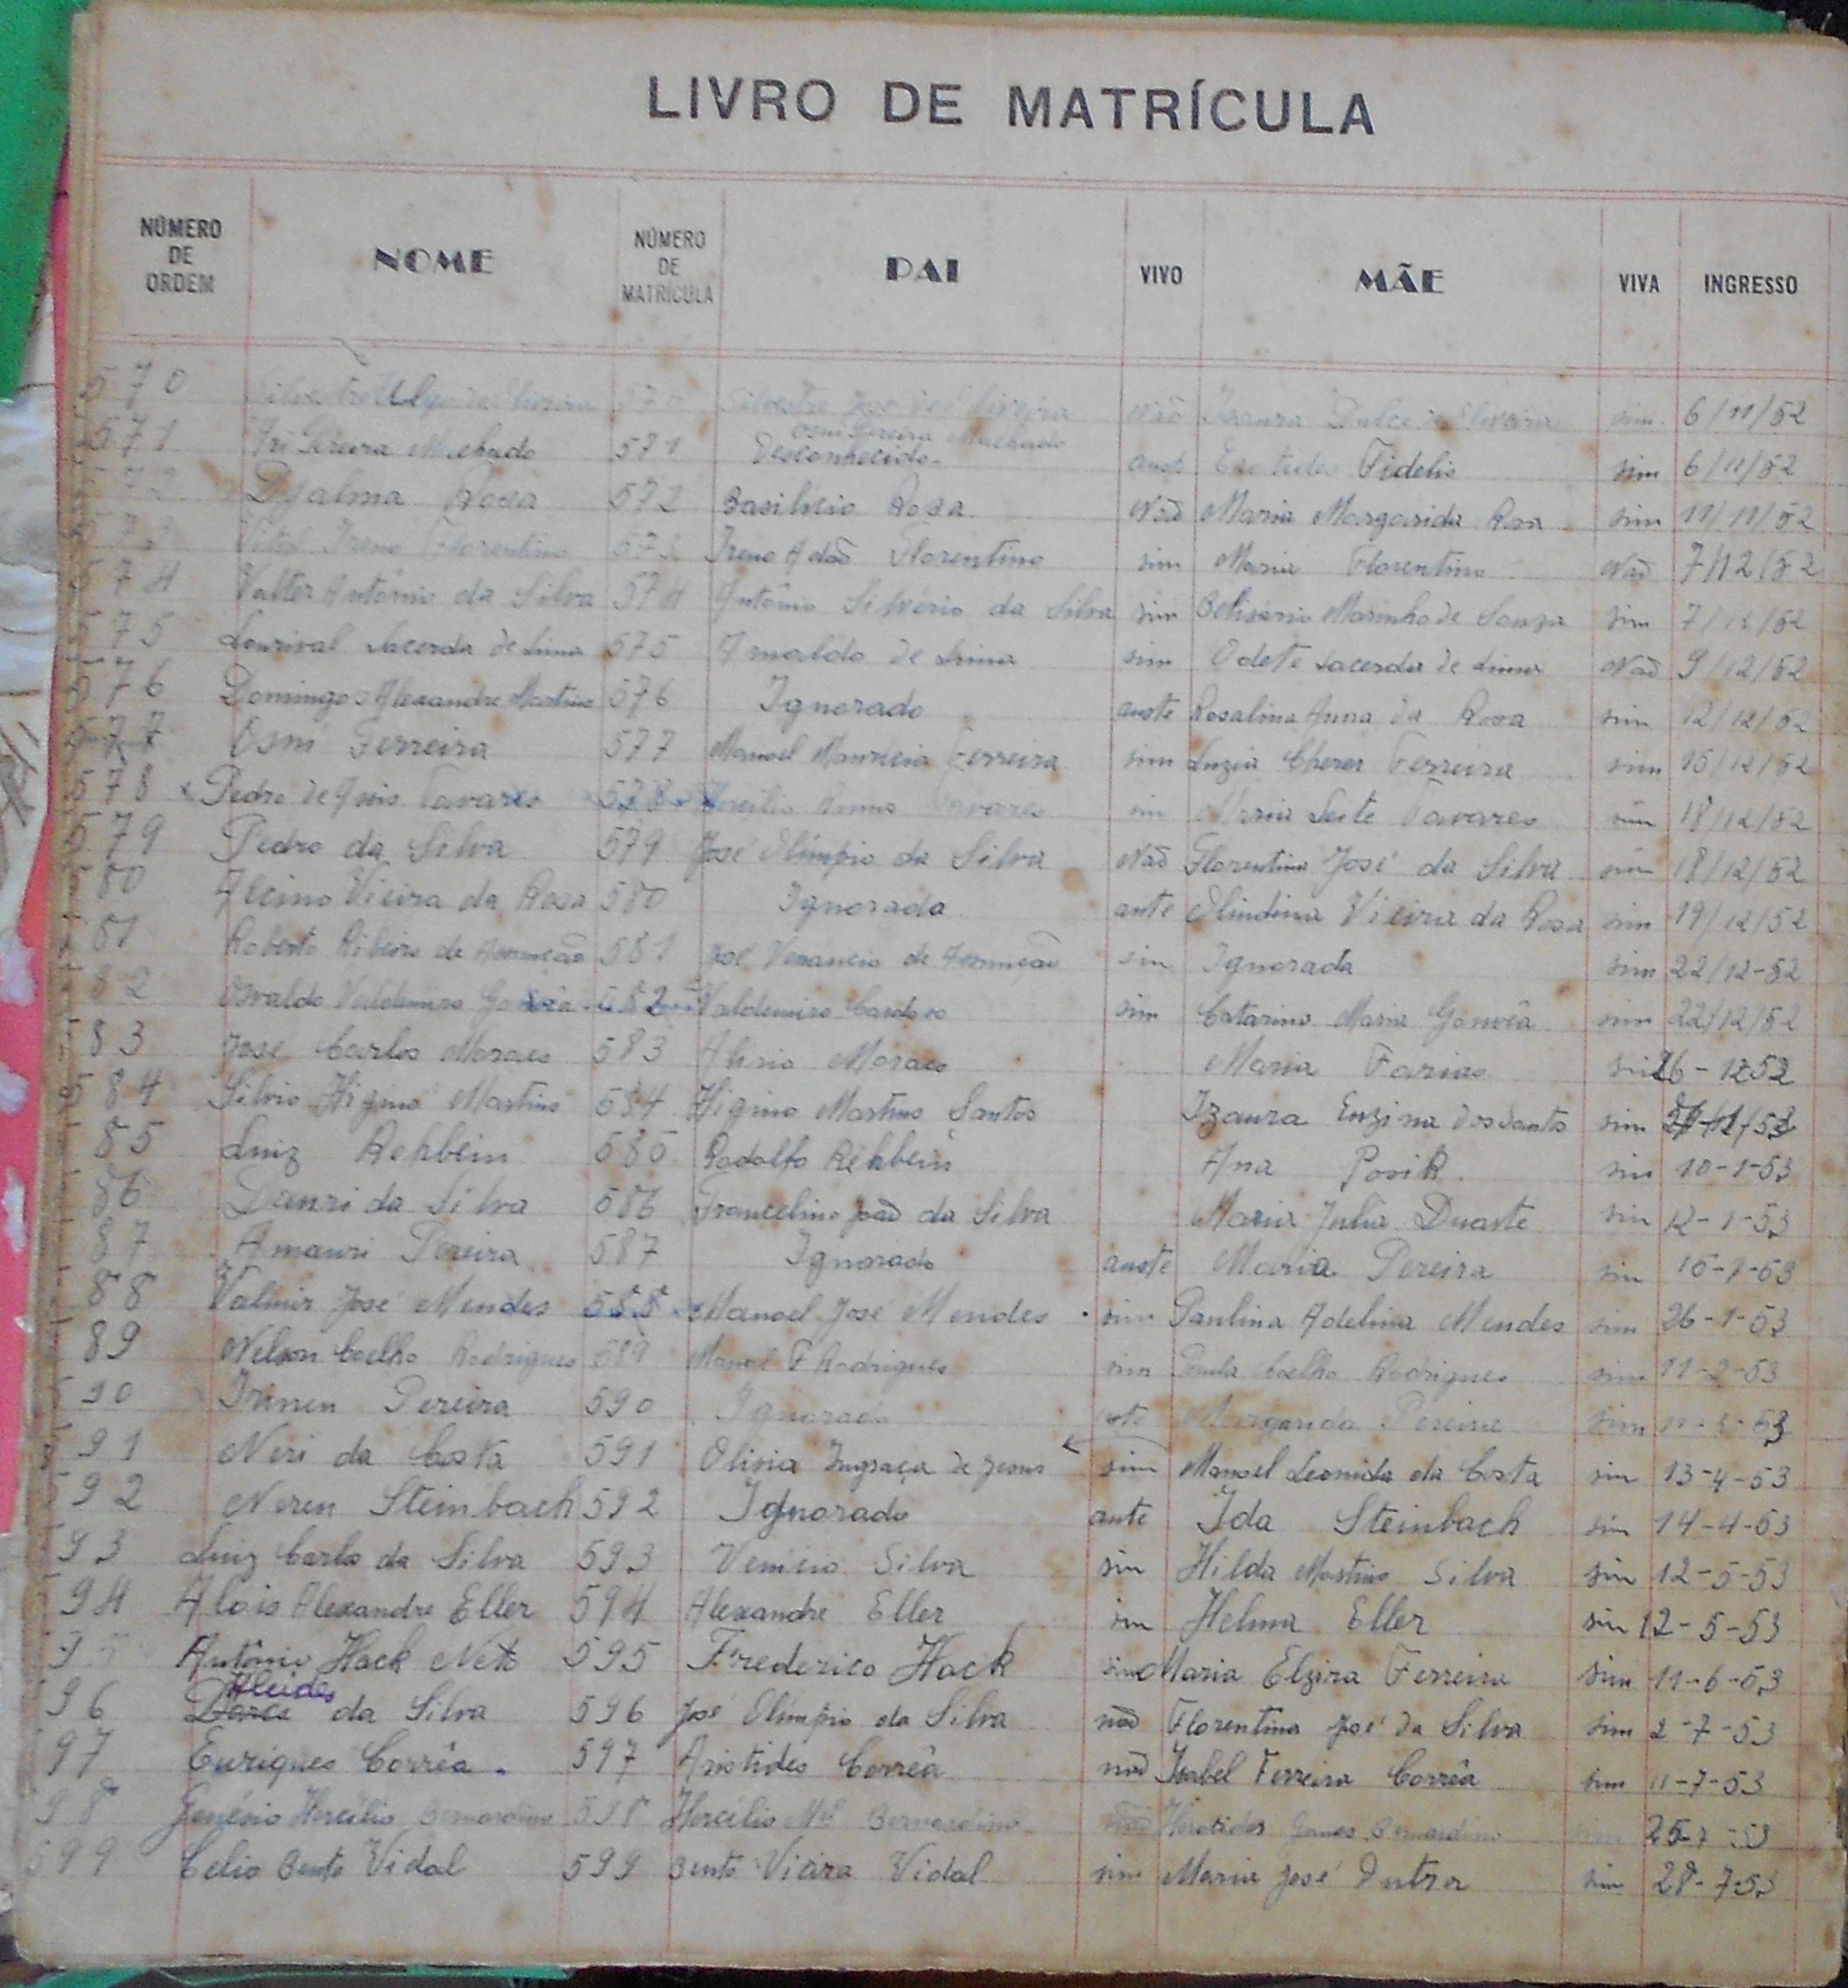 LIVRO DE MATRÍCULA
NÚMERO DE ORDEM NOME NÚMERO DE MATRÍCULA PAI VIVO MÃE VIVA INGRESSO
570 de Oliveira 570 Silvestre José de Oliveira Não Izaura Dulce de Oliveira sim 6/11/52
Osni Pereira Machado
571 Ari Pereira Machado 571 Desconhecido aust Fidelis sim 6/11/52
572 Djalma Rosa 572 Basilicio Rosa Não Maria Margarida Rosa sim 11/11/52
573 Vitor Ireno Florentino 573 Ireno Adão Florentino sim Maria Florentino Não 7/12/52
574 Valter Antônio da Silva 574 Antônio Silvério da Silva sim Belisária Marinho de Souza sim 7/12/52
575 Lourival Lacerda de Lima 575 Arnoldo de Lima sim Odete Lacerda de Lima Não 9/12/52
576 Domingos Alexandre Martins 576 Ignorado auste Rosalina Anna da Rosa sim 12/12/52
577 Osni Ferreira 577 Manoel Ferreira sim Luzia Ferreira sim 15/12/52
578 x Pedro de Assis Tavares 578 Hercilio Tavares sim Maria Leite Tavares sim 18/12/52
579 Pedro da Silva 579 José Olímpio da Silva Não Florentina José da Silva sim 18/12/52
580 Alcino Vieira da Rosa 580 Ignorado aute Olindina Vieira da Rosa sim 19/12/52
581 Roberto Ribeiro de Assunção 581 José Venâncio de Assunção sim Ignorada sim 22/12-52
82 Osvaldo Valdemiro 582 Valdemiro Cardoso sim Catarina Maria sim 22/12/52
583 José Carlos Moraes 583 Alirio Moraes Maria Farias sim 26-1252
584 Silvio Higino Martins 584 Higino Martins Santos Izaura Enzina dos Santos sim
85 Luiz Rehbein 585 Rodolfo Rehbein Ana Posik sim 10-1-53
86 Danri da Silva 586 Francelino João da Silva Maria Julia Duarte sim 12-1-53
87 Amauri Pereira 587 Ignorado auste Maria Pereira sim 15-1-53
88 Valmir José Mendes 588 Manoel José Mendes sim Paulina Adelina Mendes sim 26-1-53
89 Nelson Coelho Rodrigues 589 Manoel F Rodrigues sim Coelho Rodrigues sim 11-2-53
90 Irineu Pereira 590 Ignorado Pereira sim
91 Neri da Costa 591 Olivia Ingraça de Jesus sim Manoel Leonida da Costa sim 13-4-53
592 Neren Steinbach 592 Ignorado aute Ida Steinbach sim 14-4-53
93 Luiz Carlo da Silva 593 Venicio Silva sim Hilda Martins Silva sim 12-5-53
94 Alois Alexandre Eller 594 Alexandre Eller sim Helma Eller sim 12-5-53
95 Antônio Hack Neto 595 Frederico Hack sim Maria Elzira Ferreira sim 11-6-53
Alcides
96 Darci da Silva 596 José Olímpio da Silva não Florentina José da Silva sim 2-7-53
97 Euriques Corrêa 597 Aristides Corrêa não Isabel Ferreira Corrêa sim 11-7-53
98 Genésio Hercílio Bernardino 598 Hercílio Ml Bernardino não Bernardino sim 25-7-53
599 Celio Bento Vidal 599 Bento Vieira Vidal sim Maria José Dutra sim 28-7-53